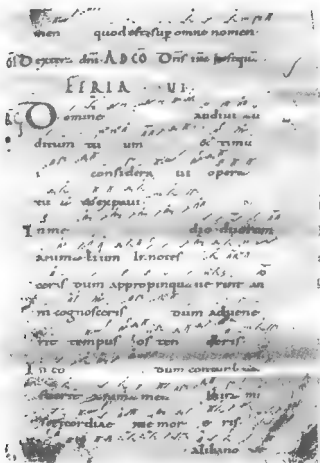 men quod est sup omne nomen
Dextera dni. AD CO
FERIA VI
Domine audivi au
ditum tu um & timu
i consideravi opera
tu a & expavi
In me dio duorum
animalium In notes
ceris Dum appropinquaverint an
ni cognosceris Dum advene
rit tempus osten deris
In eo Dum conturbata
fuerit anima mea In ira mi
sericordiae memor eris
alibano